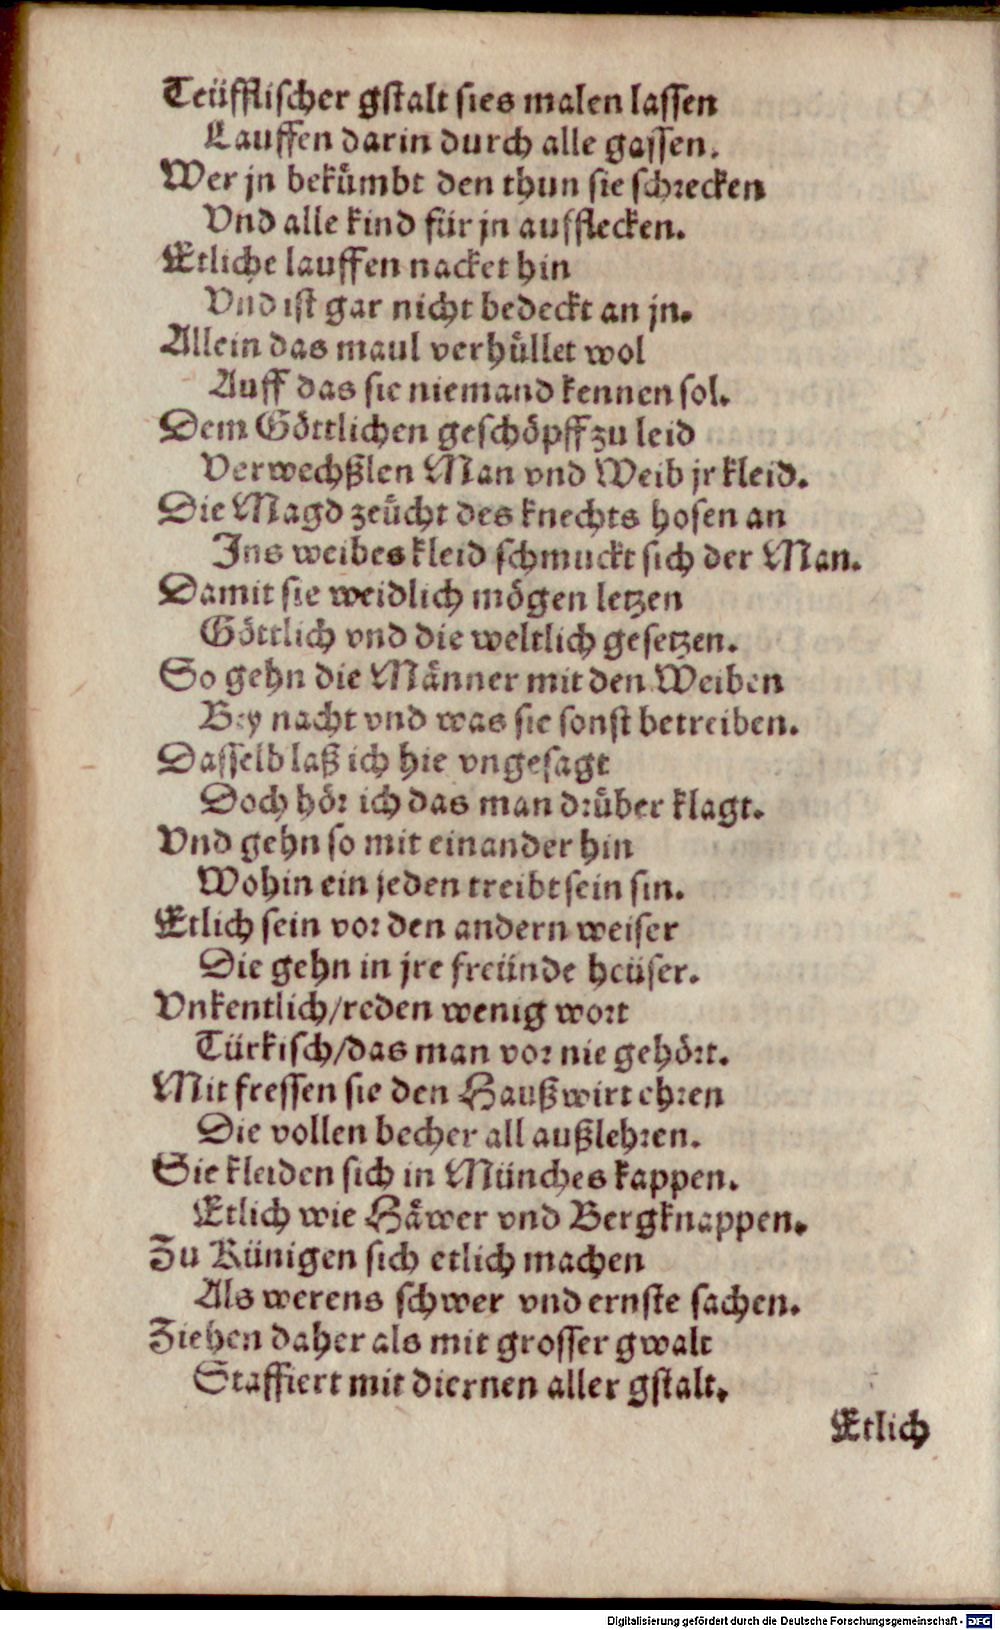 Teüfflischer gstalt sies malen lassen
Lauffen darin durch alle gassen.
Wer jn bekümbt den thun sie schrecken
Vnd alle kind für jn aufflecken.
Etliche lauffen nacket hin
Vnd ist gar nicht bedeckt an jn.
Allein das maul verhüllet wol
Auff das sie niemand kennen sol.
Dem Göttlichen geschöpff zu leid
Verwechßlen Man vnd Weib jr kleid.
Die Magd zeücht des knechts hosen an
Ins weibes kleid schmuckt sich der Man.
Damit sie weidlich mögen letzen
Göttlich vnd die weltlich gesetzen.
So gehn die Männer mit den Weiben
Bey nacht vnd was sie sonst betreiben.
Dasselb laß ich hie vngesagt
Doch hör ich das man drüber klagt.
Vnd gehn so mit einander hin
Wohin ein jeden treibt sein sin.
Etlich sein vor den andern weiser
Die gehn in jre freünde heüser.
Vnkentlich/reden wenig wort
Türkisch/das man vor nie gehört.
Mit fressen sie den Haußwirt ehren
Die vollen becher all außlehren.
Sie kleiden sich in Münches kappen.
Etlich wie Häwer vnd Bergknappen.
Zu Künigen sich etlich machen
Als werens schwer vnd ernste sachen.
Ziehen daher als mit grosser gwalt
Staffiert mit diernen aller gstalt.
Etlich
Digitalisierung gefördert durch die Deutsche Forschungsgemeinschaft - DFG